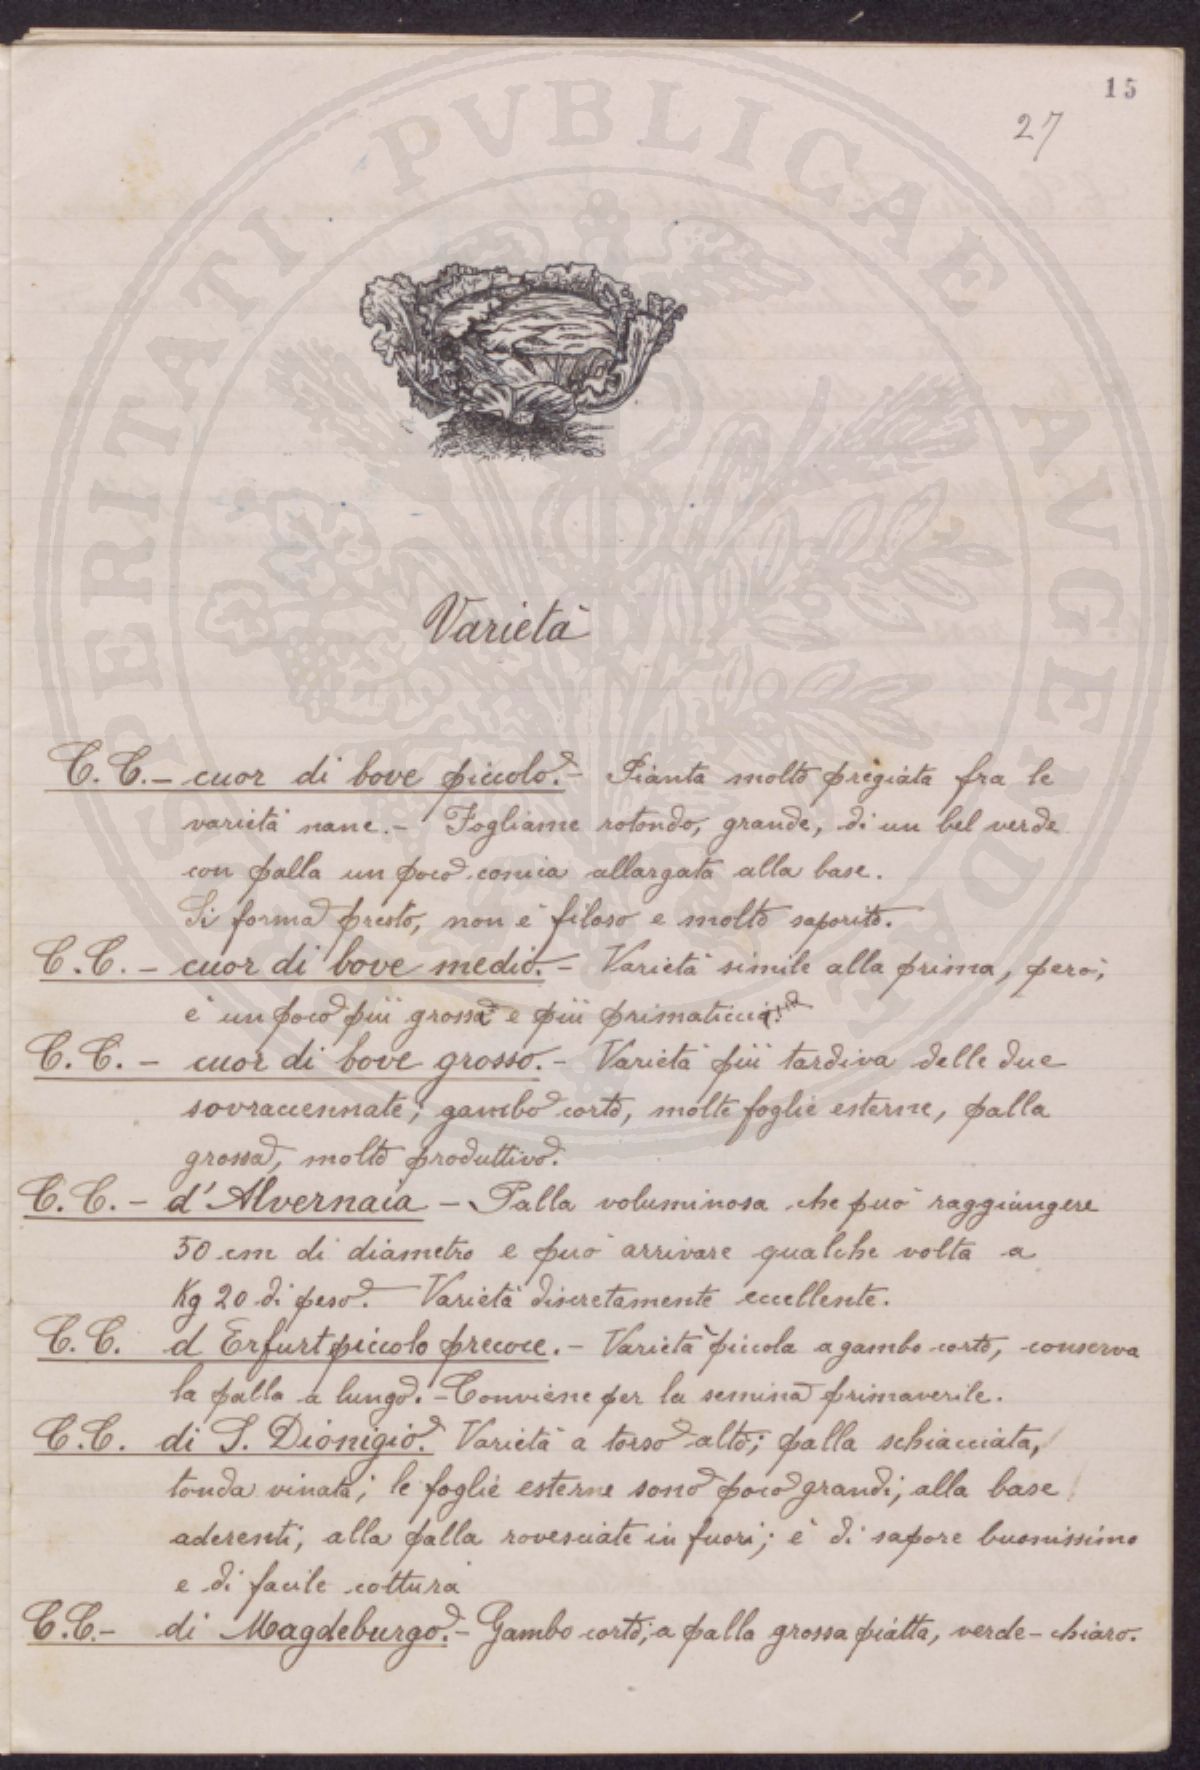 15
27
Varietà
C.C. - cuor di bove piccolo. - Pianta molto pregiata fra le
varietà nane. - Fogliame rotondo, grande, di un bel verde
con palla un poco conica allargata alla base.
Si forma presto, non è filoso e molto saporito.
C.C. - cuor di bove medio. - Varietà simile alla prima, però,
è un poco più grossa e più primaticcia.
C.C. - cuor di bove grosso. - Varietà più tardiva delle due
sovraccennate; gambo corto, molte foglie esterne, palla
grossa, molto produttivo.
C.C. - d'Alvernaia - Palla voluminosa che può raggiungere
50 cm di diametro e può arrivare qualche volta a
Kg 20 di peso. Varietà discretamente eccellente.
C.C. d Erfurt piccolo precoce. - Varietà piccola a gambo corto, conserva
la palla a lungo. - Conviene per la semina primaverile.
C.C. di S. Dionigio. Varietà a torso alto; palla schiacciata,
tonda vinata; le foglie esterne sono poco grandi; alla base
aderenti, alla palla rovesciate in fuori; è di sapore buonissimo
e di facile cottura
C.C. - di Magdeburgo. - Gambo corto; a palla grossa piatta, verde-chiaro.
PROSPERITATI PVBLICAE AVGENDAE